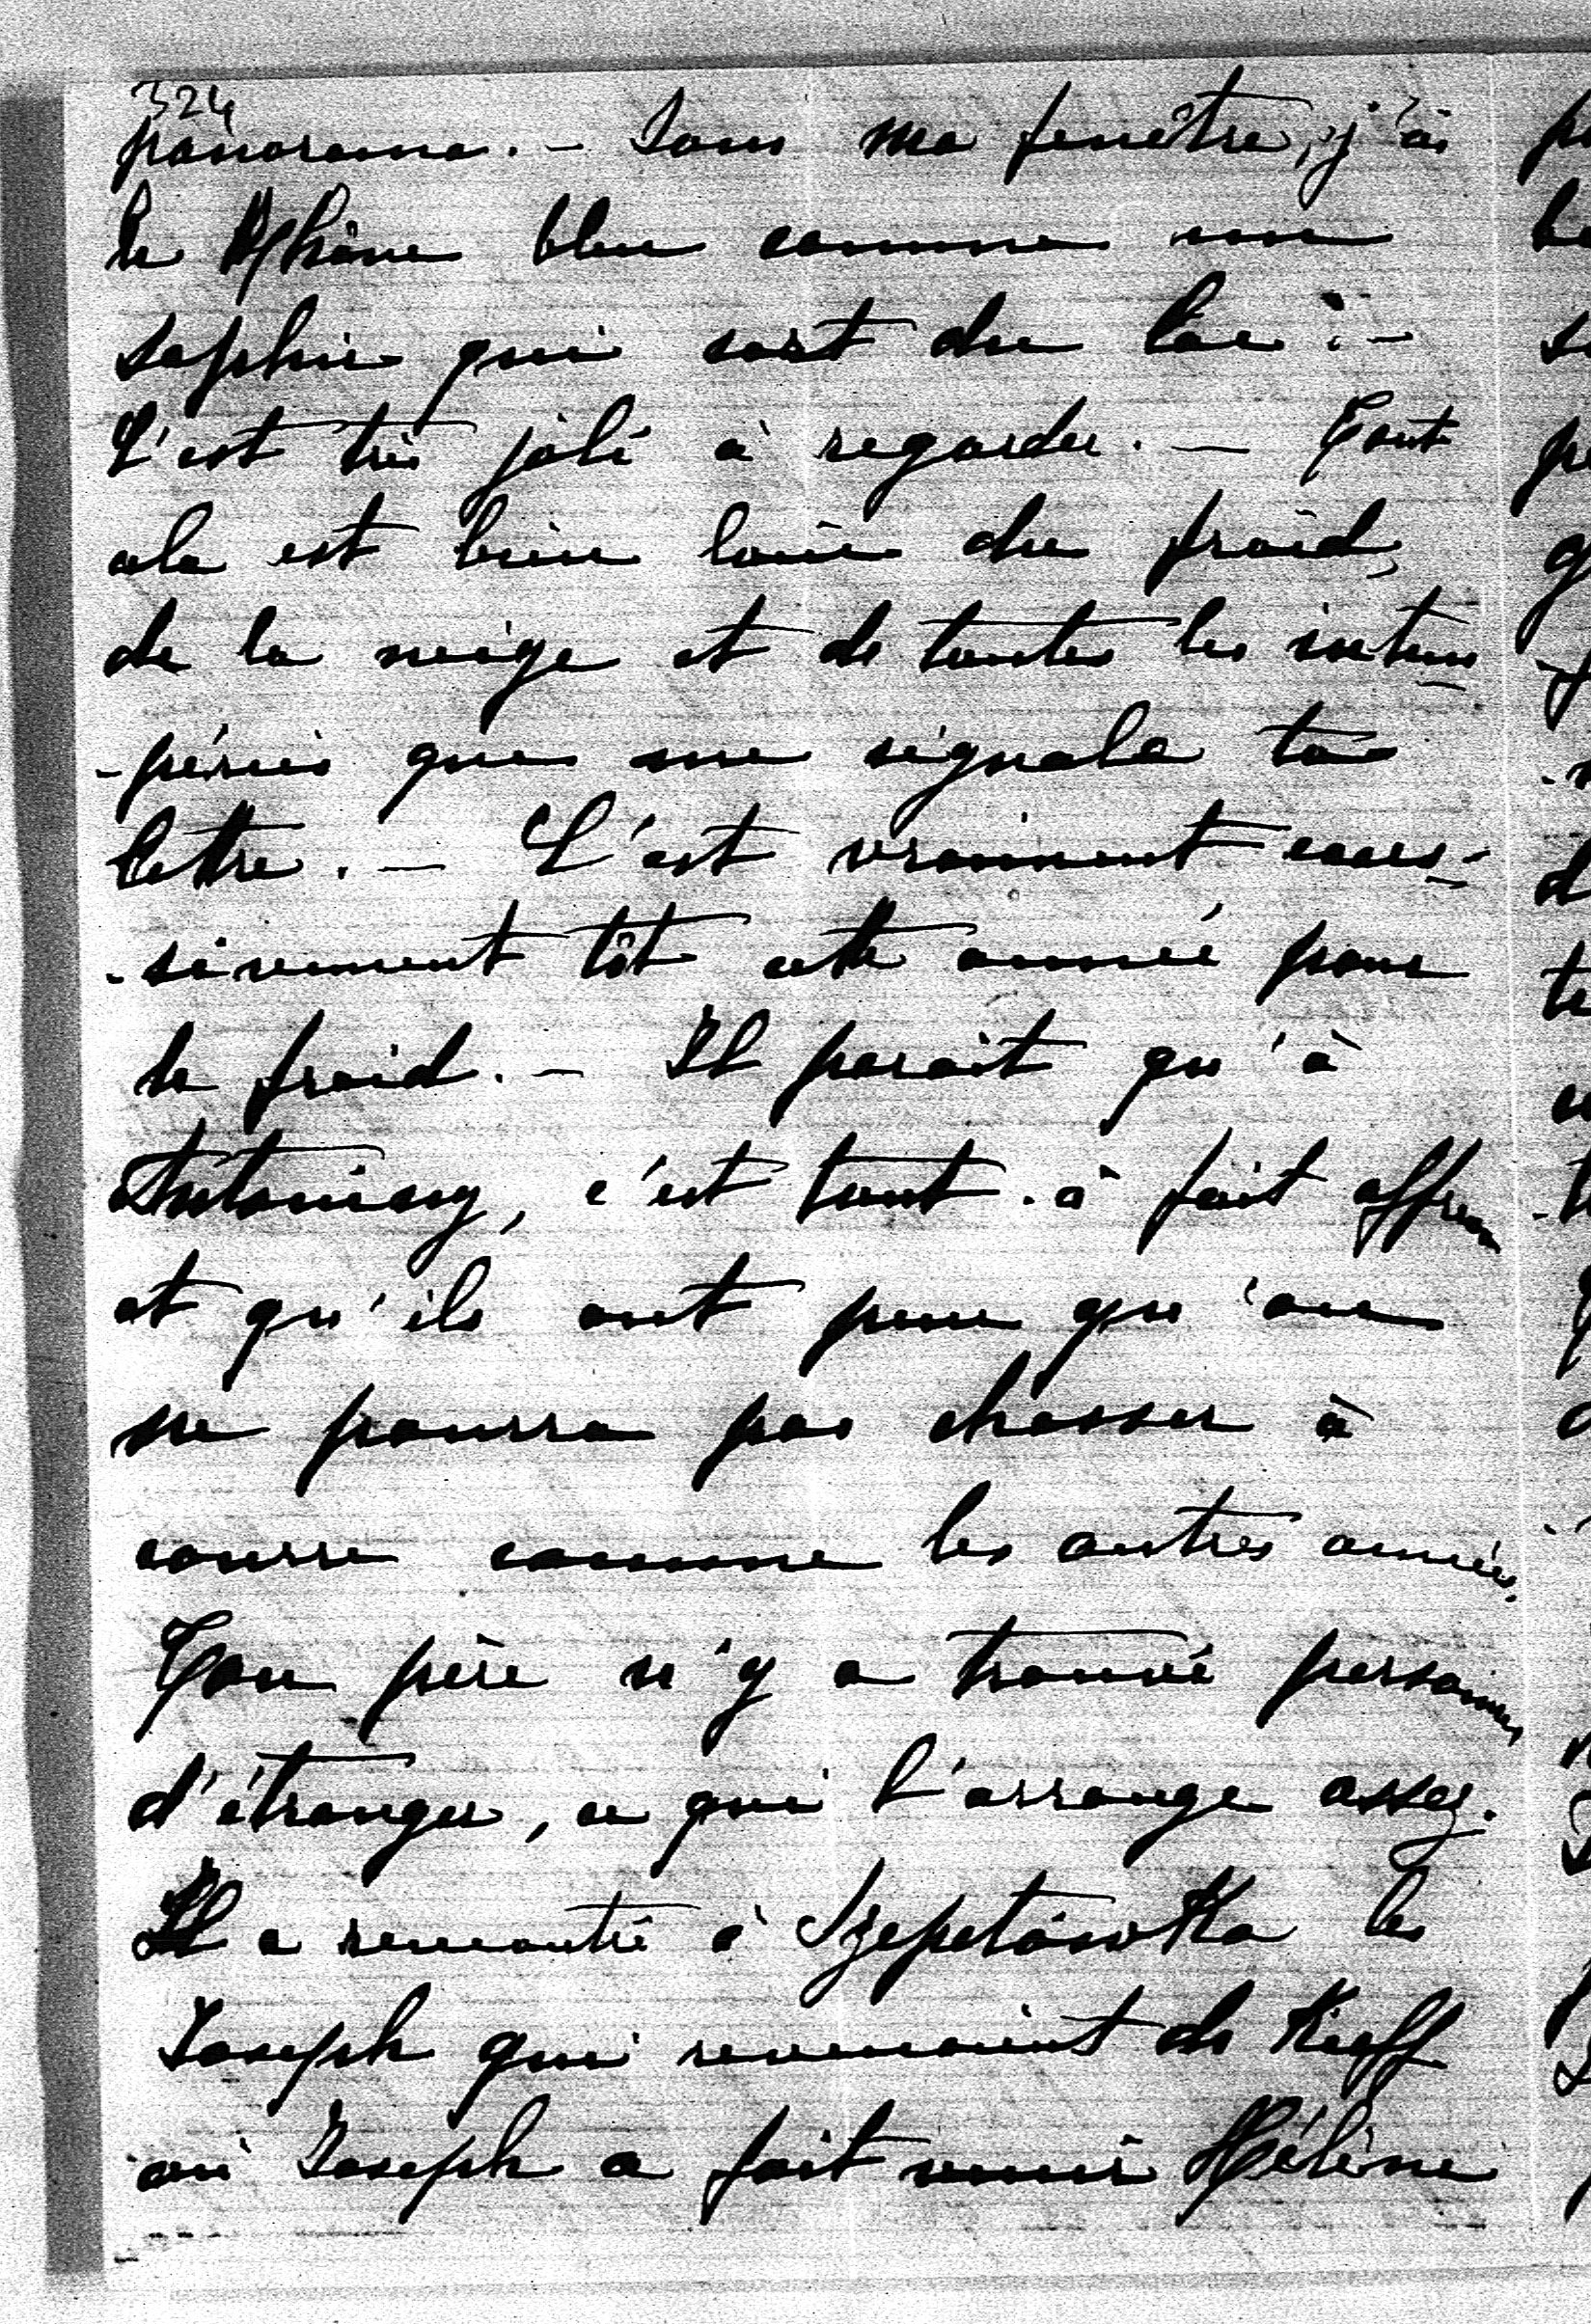 324
panorama. — Sous ma fenêtre, j'ai
le Rhône bleu comme un
saphir qui sort du lac. —
C'est très joli à regarder. — Tout
cela est bien loin du froid,
de la neige et de toutes les intem
-péries que me signale ta
lettre. — C'est vraiment exces-
-sivement tôt cette année pour
le froid. — Il parait qu'à
Antoniny, c'est tout-à fait affreux
et qu'ils ont peur qu'on
ne pourra pas chasser à
courre comme les autres années.
Ton père n'y a trouvé personne
d'étranger, ce qui l'arrange assez.
Il a rencontré à Szepetówka les
Joseph qui revenaient de Kieff
où Joseph a fait venir Hélène